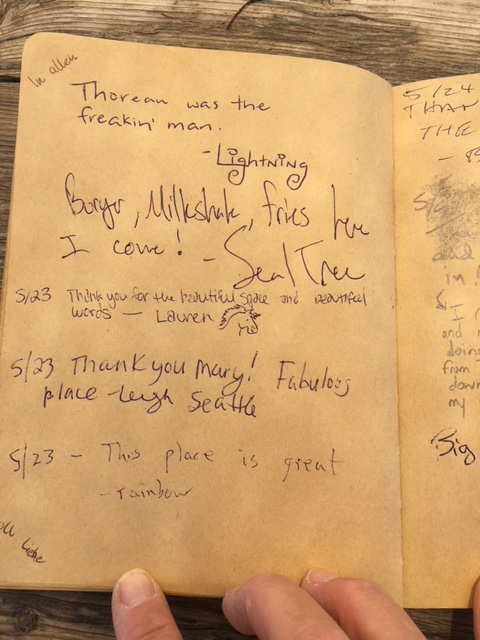 In allen
Thoreau was the
freakin' man.
- Lightning
Burger, Milkshake, fries here
I come! - Seal Tree
5/23 Thank you for the beautiful space and beautiful
words — Lauren
5/23 Thank you Mary! Fabulous
place - Leigh Seattle
5/23 - This place is great
- rainbow
liebe
5/24
THAN
THE
and
in
I
and
doing
from
down
my
Big